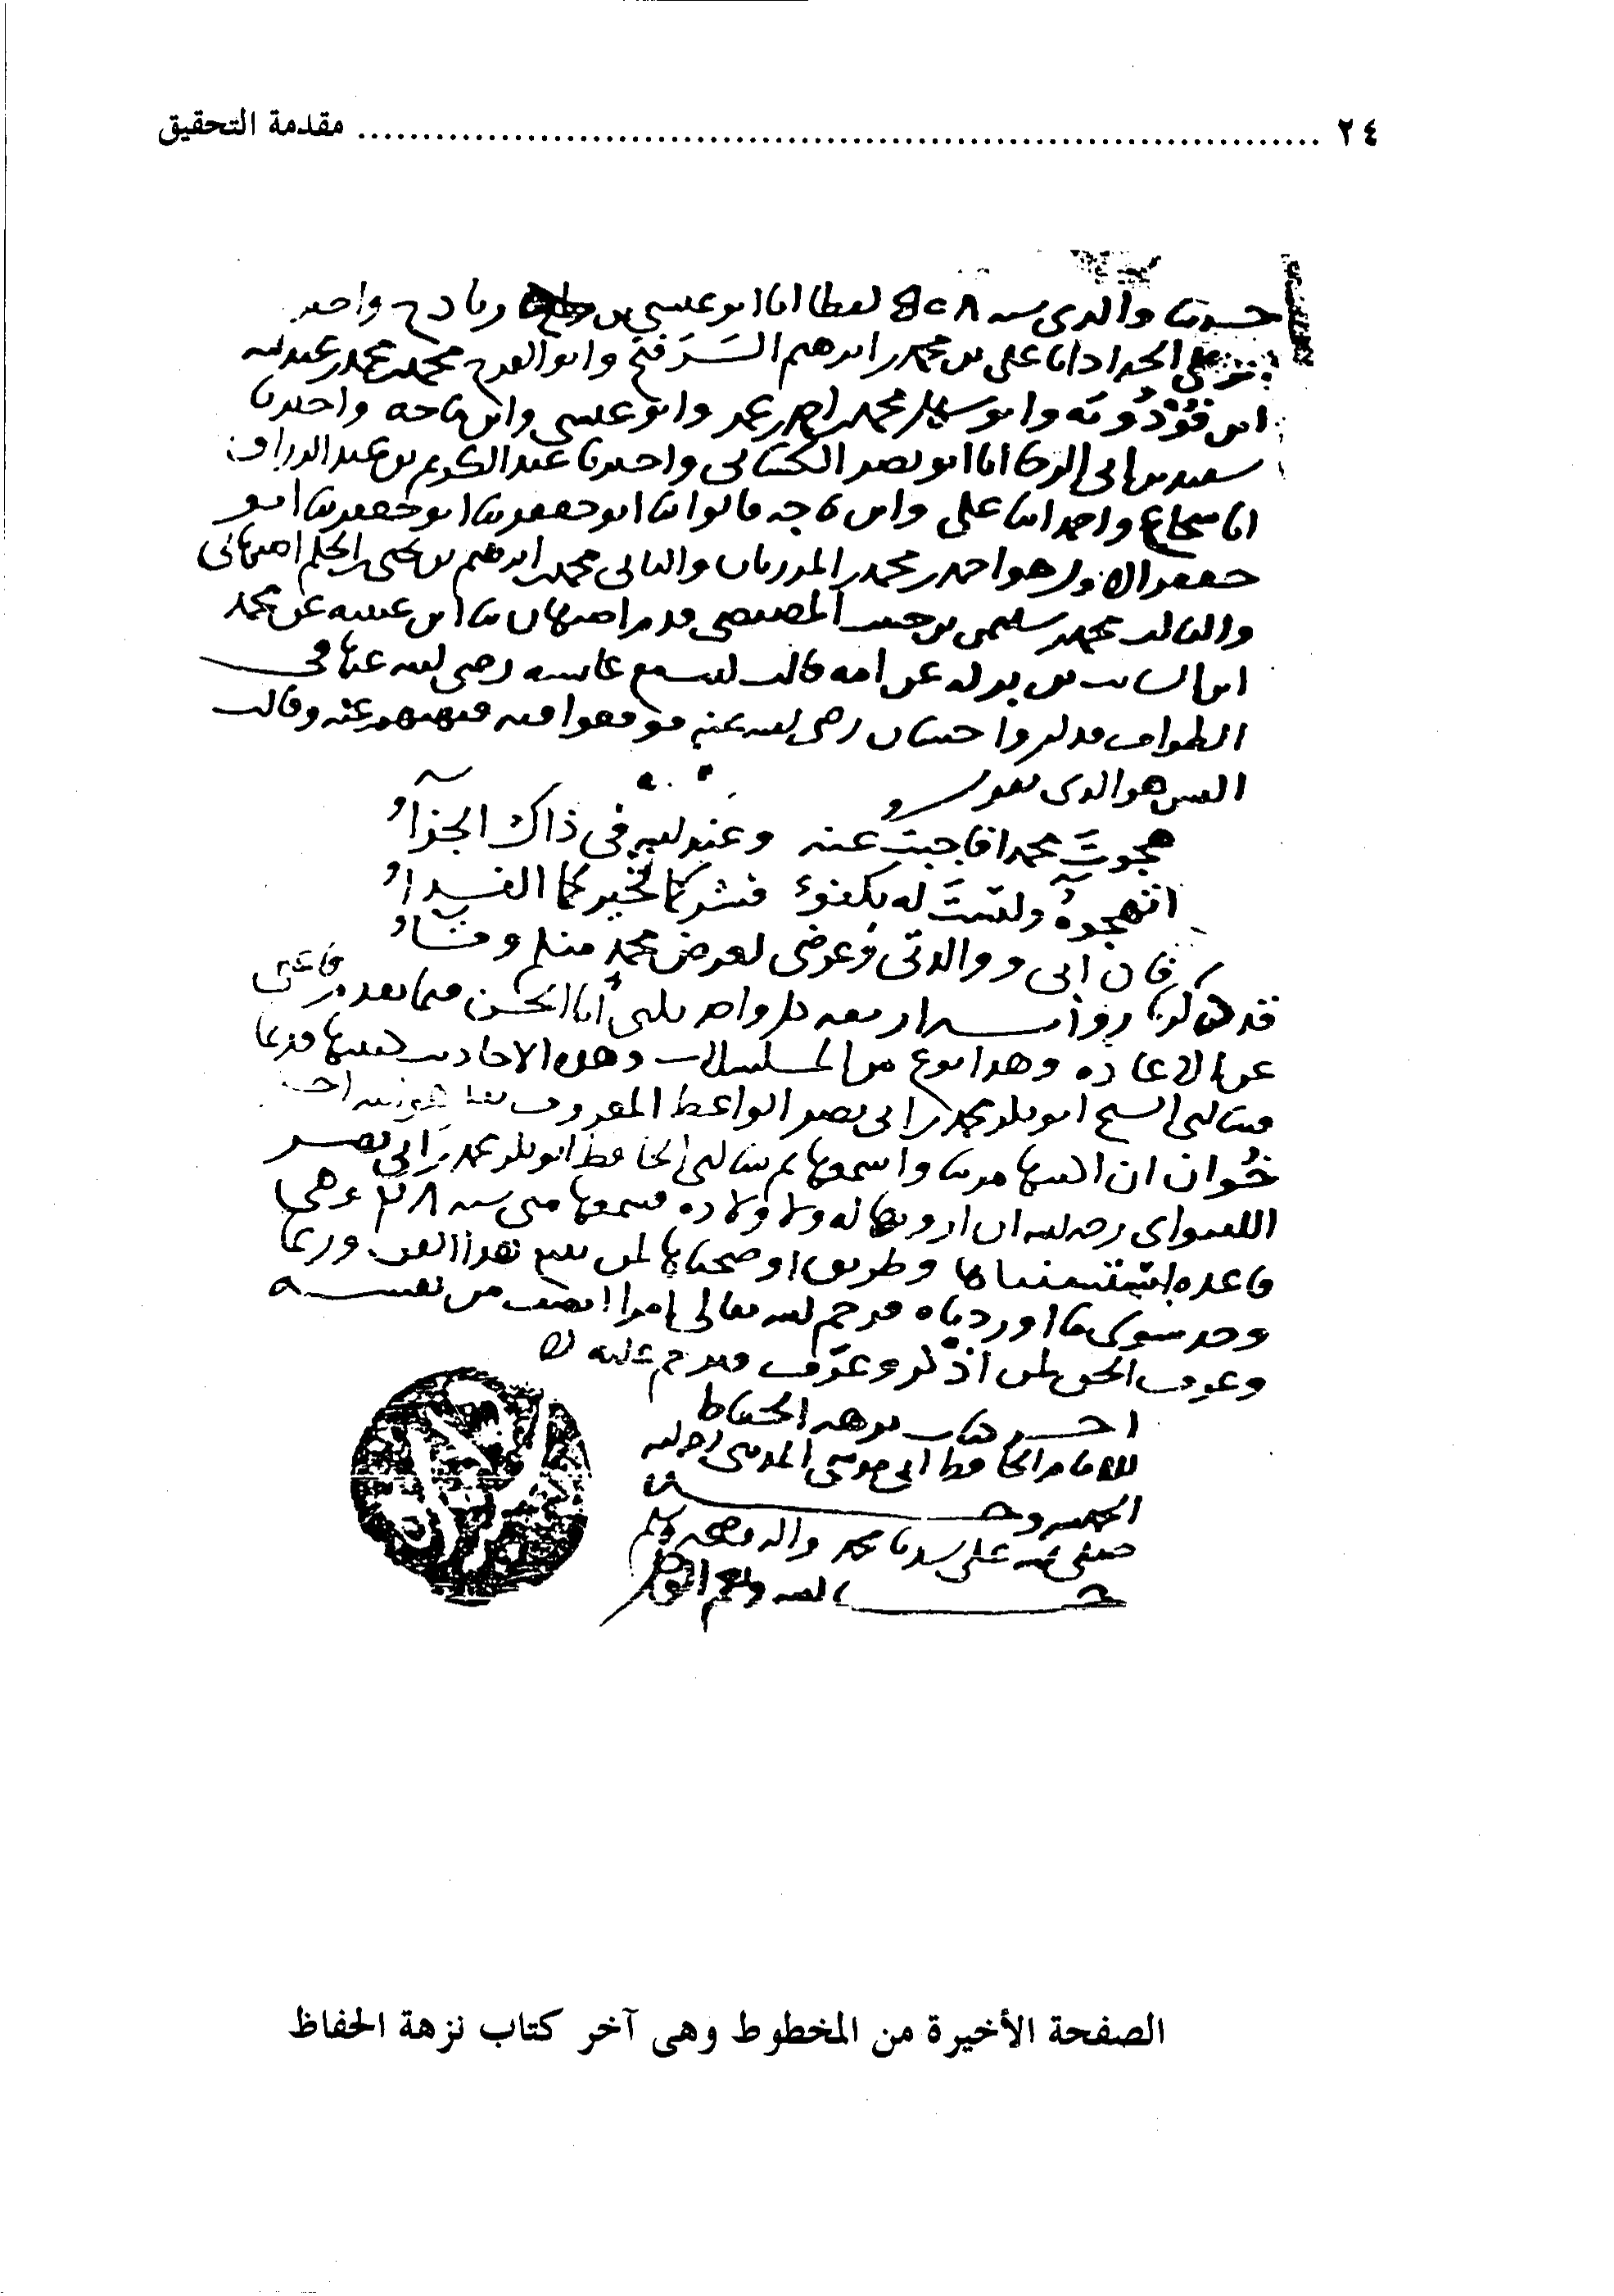 ٢٤ ........ مقدمة التحقيق
حدثنا والدي سنه لفظا انا ابو عيسى بن زياد ح واخبرنا
الحداد انا علي بن محمد بن ابرهيم وابو الفرج محمد بن عبد الله
وابو محمد بن احمد بن وابو عيسى وابن ماجه واخبرنا
سعيد بن ابي الرجا انا ابو نصر الكسائي واخبرنا عبد الكريم بن عبد الرزاق
انا شجاع واحمد ابنا علي وابن ماجه قالوا انا ابو جعفر ثنا ابو جعفر ثنا ابو
جعفر الاول هو احمد بن محمد بن المرزبان والثاني محمد بن ابرهيم بن يحيى بن الحكم اصبهاني
والثالث محمد بن سليمن بن حبيب المصيصي قدم اصبهان ثنا ابن عيينه عن محمد
ابن السائب بن بركه عن امه قالت عائشه رضي الله عنها في
الطواف فذكروا حسان رضي الله عنه فوقعوا فيه فنهتهم عنه وقالت
اليس هو الذي يقول
هجوتَ محمدا فاجبتُ عنه وعند الله في ذاك الجزآءُ
اتهجوهُ ولستَ له بكفؤ فشركما لخيركما الفداءُ
فان ابي ووالدتي وعرضي لعرض محمد منكم وقاءُ
قد ذكرنا رواه اربعه كل واحد يكنى ابا الحسن فيما بعد فاغنى
عن الاعاده وهذا نوع من المسلسلات وهذه الاحاديث كتبتها قديما
فسالني الشيخ ابو بكر محمد بن ابي نصر الواعظ المعروف
خُوان ان اكتبها واسمعها ثم سالني الحافظ ابو بكر محمد بن ابي نصر
اللفتواني رحمه الله ان ارويها له ولاولاده فسمعها مني سنه وهي
قاعده وطريق اوضحناها لمن يتبع هذا الفن وربما
وجد سوى ما اوردناه فرحم الله تعالى امرا انصف من نفسه
وعرف الحق لمن اذكر وعرّف وترحم عليه
اخر كتاب نزهه الحفاظ
للامام الحافظ ابي موسى المديني رحمه الله
الحمد لله وحده
صلى الله على سيدنا محمد واله وصحبه وسلم
حسبنا الله ونعم الوكيل
الصفحة الأخيرة من المخطوط وهى آخر كتاب نزهة الحفاظ